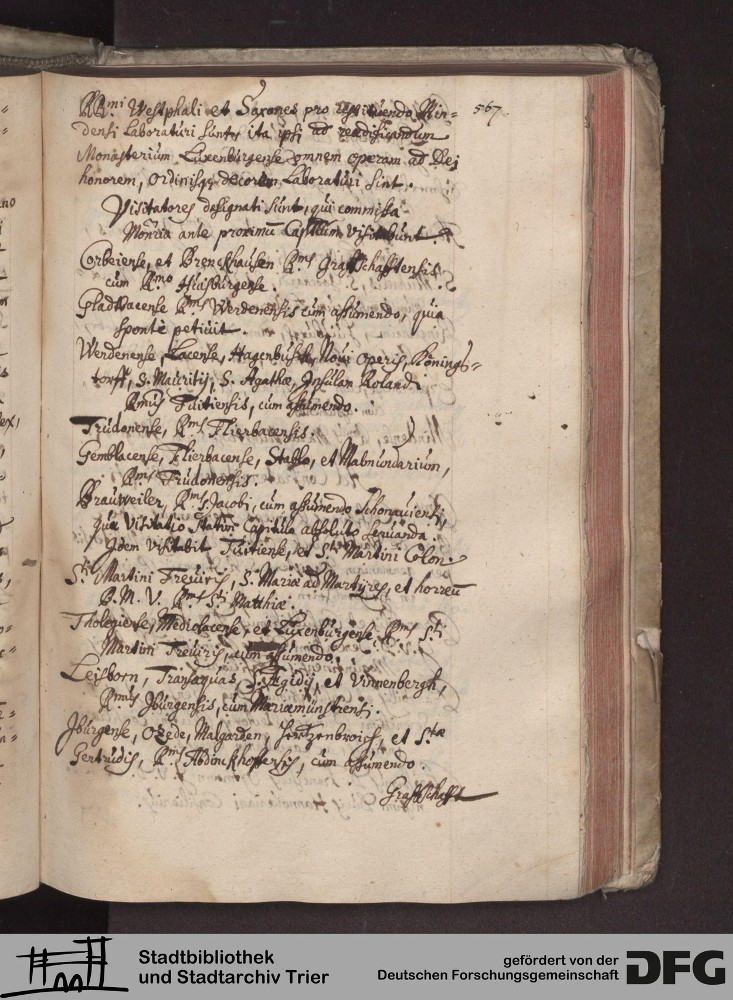 567.
RR.mi Westphali et Saxones pro restituendo Min=
densi Laboraturi sunt, ita ipsi ad reædificandum
Monasterium Luxenburgense omnem operam ad Dei
honorem, ordinisq, decorem Laboraturi sint.
Visitatores designati sunt, qui commissa
Monria ante proximū Captlum visitabunt
Corbeiense, et Brenckhausen R.ms Graffschafftensis
cum R.mo Huisburgense.
Gladbacense R.ms Werdenensis cum assumendo, quia
sponte petiuit.
Werdenense, Lacense, Hagenbusch, Noui operis, Königs=
torff, S. Mauritij, S. Agathæ, Insulam Rolandi
R.mus Tuitiensis, cum assumendo.
Trudonense, R.ms Flierbacensis.
Gemblacense, Flierbacense, Stablo, et Malmundarium,
R.ms Trudonensis.
Brauweiler, R.ms S. Jacobi, cum assumendo Schonauiensi,
quæ Visitatio statim Capitulo absoluto seruanda.
Idem visitabit Tuitiense, et S.ti Martini Colon.
S.ti Martini Treuiris, S. Mariæ ad Martyres, et horreū
B. M. V. R.ms S.ti Matthiæ.
Tholeyense, Mediolacense, et Luxenburgense R.ms S.ti
Martini Treuiris, cum assumendo.
Leisborn, Transaquas S. Ægidij, et Vinnenbergh,
R.mus Iburgensis, cum Mariæmünstrensi.
Iburgense, Oezede, Malgarden, Hertzenbroich, et S.tæ
Gertrudis, R.ms Abdinckhoffensis, cum assumendo.
Graffschafft
Stadtbibliothek
und Stadtarchiv Trier
gefördert von der
Deutschen Forschungsgemeinschaft
DFG